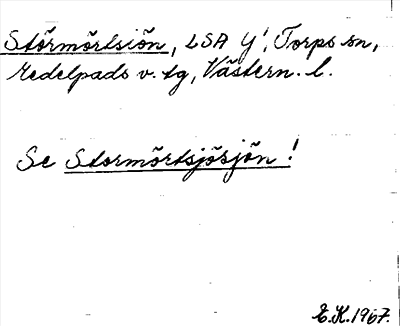 Störmörtsiön, LSA Y!, Torps sn,
Medelpads v. tg, Västern. l.
Se Stormörtsjösjön!
E.K. 1967.